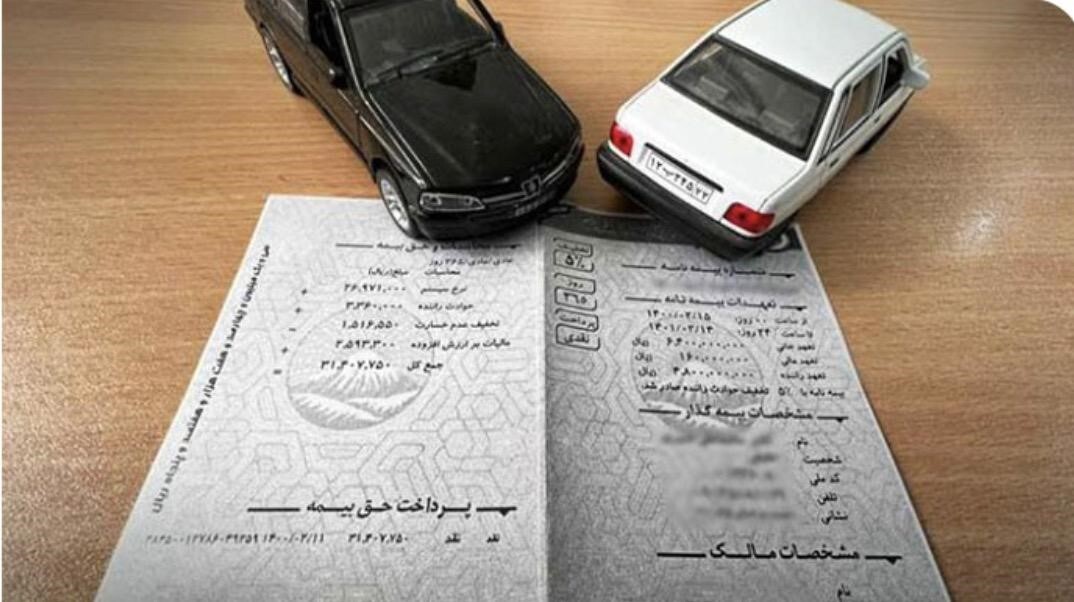 شماره بیمه نامه
تعهدات بیمه نامه
از ساعت ۰۰ روز: ۱۴۰۰/۰۲/۱۵
تا ساعت ۲۴ روز: ۱۴۰۱/۰۲/۱۴
تعهد جانی ۶,۴۰۰,۰۰۰,۰۰۰ ریال
تعهد مالی ۱۶۰,۰۰۰,۰۰۰ ریال
تعهد راننده ۴,۸۰۰,۰۰۰,۰۰۰ ریال
بیمه نامه با ۵٪ تخفیف حوادث راننده صادر شد.
مشخصات بیمه گذار
نام
شخصیت
کد ملی
تلفن
نشانی
مشخصات مالک
نام
تخفیف
۵٪
روز
۳۶۵
پرداخت
نقدی
و حق بیمه
عادی/عادی/۳۶۵ روز
محاسبات مبلغ(ریال)
نرخ سیستم ۲۶,۹۷۱,۰۰۰ +
حوادث راننده ۳,۳۶۰,۰۰۰ +
تخفیف عدم خسارت ۱,۵۱۶,۵۵۰ -
مالیات بر ارزش افزوده ۲,۵۹۳,۳۰۰ +
جمع کل ۳۱,۴۰۷,۷۵۰ =
سی و یک میلیون و چهارصد و هفت هزار و هفتصد و پنجاه ریال
پرداخت حق بیمه
نقد نقد ۳۱,۴۰۷,۷۵۰ ۱۴۰۰/۰۲/۱۱